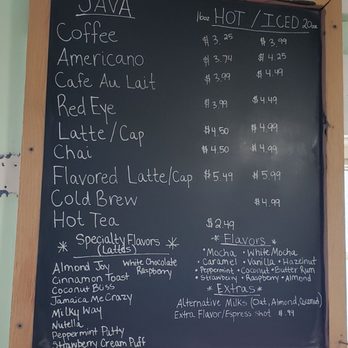 JAVA
16oz HOT / ICED 20oz
Coffee $3.25 $3.99
Americano $3.74 $4.25
Cafe Au Lait $3.99 $4.49
Red Eye $3.99 $4.49
Latte/Cap $4.50 $4.99
Chai $4.50 $4.99
Flavored Latte/Cap $5.49 $5.99
Cold Brew $4.99
Hot Tea $2.49
Specialty Flavors
(Lattes)
Almond Joy White Chocolate
Raspberry
Cinnamon Toast
Coconut Bliss
Jamaica Me Crazy
Milky Way
Nutella
Peppermint Patty
Strawberry Cream Puff
Flavors
• Mocha • White Mocha
• Caramel • Vanilla • Hazelnut
• Peppermint • Coconut • Butter Rum
• Strawberry • Raspberry • Almond
Extras
Alternative Milks (Oat, Almond, Coconut)
Extra Flavor/Espress Shot $.99